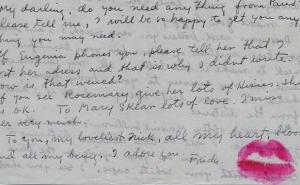 My darling, do you need any thing from
Please tell me, I will be so happy to get you any
thing you may need.
If Eugenia phones you, please tell her that I
lost her adress and that is why I didn't write.
How is that weird?
If you see Rosemary give her lots of kisses. She
is O.K. To Mary lots of love. I miss
her very much.
To you, my loveliest, all my heart,
and all my being. I adore you